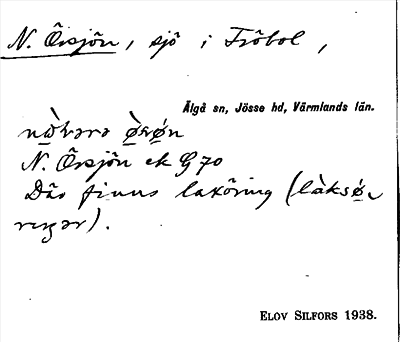 N. Örsjön, sjö i Fröbol,
Älgå sn, Jösse hd, Värmlands län.
N. Örsjön ek G 70
Där finns laxöring (làksø̀-
reŋər).
ELOV SILFORS 1938.